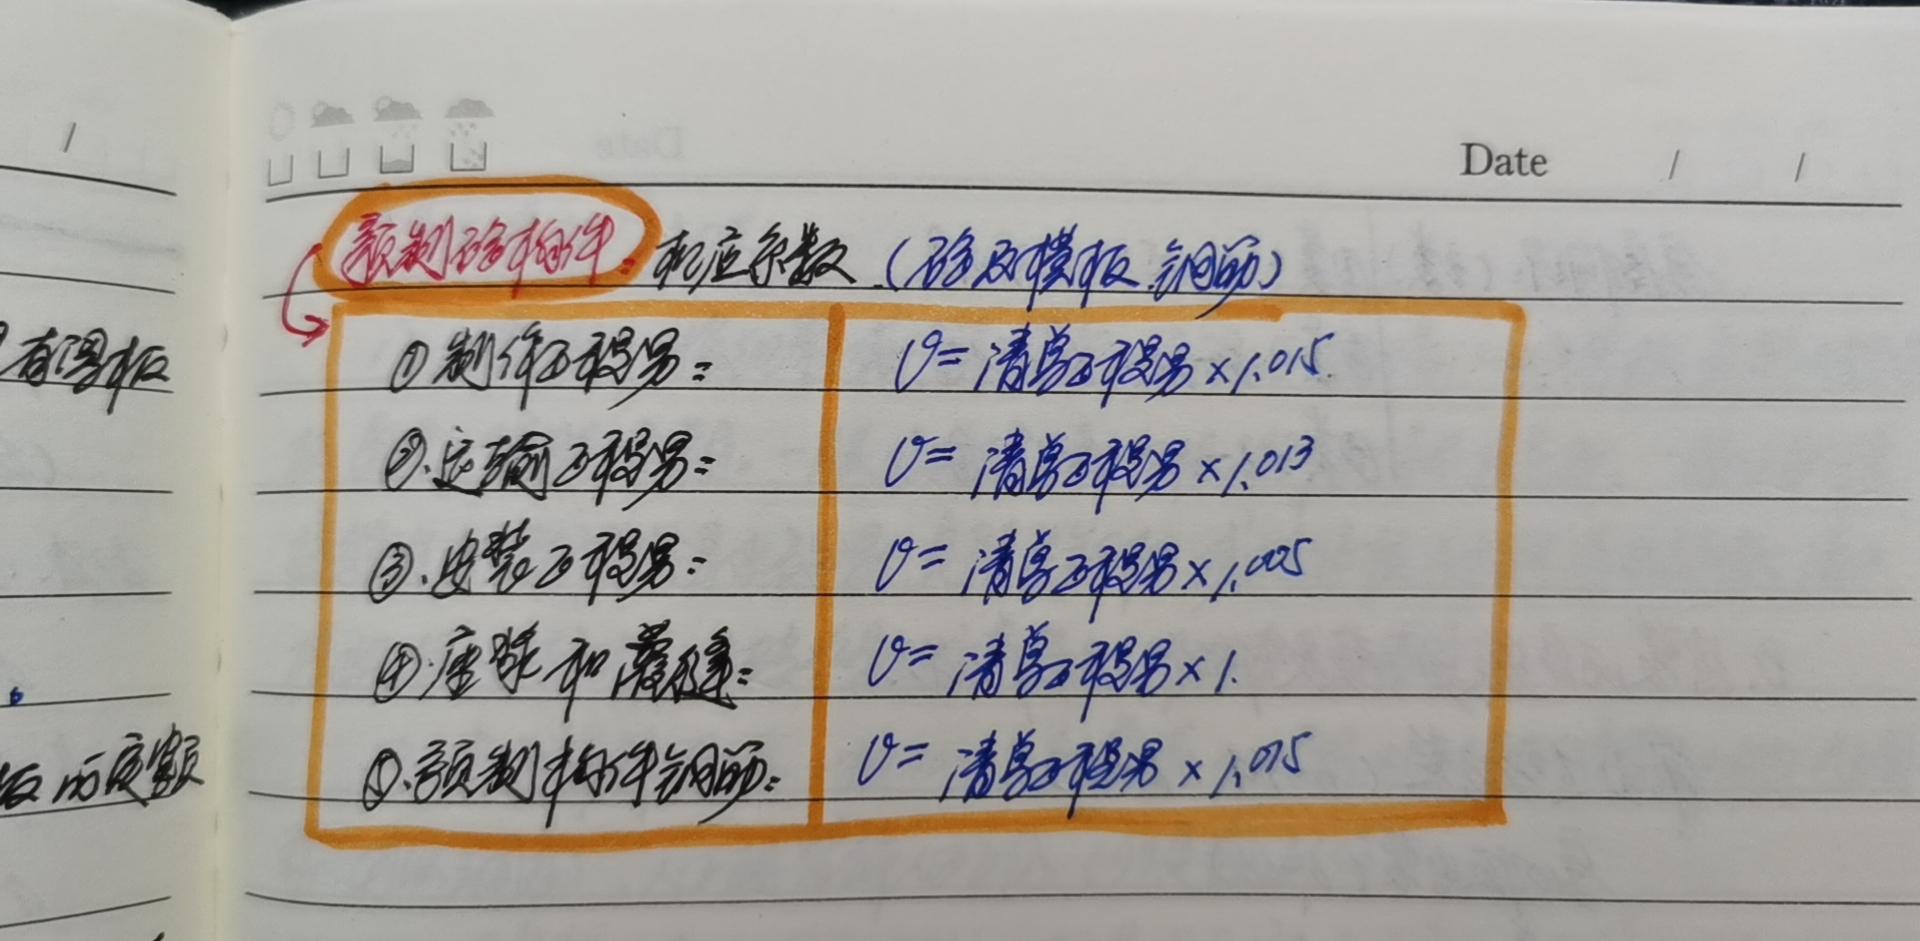 /
Date / /
预制砼构件: 相应系数 (砼及模板.钢筋)
①制作工程量: V= 清单工程量×1.015
有湿板
②.运输工程量: V= 清单工程量×1.013
③.安装工程量: V= 清单工程量×1.005
④.座浆和灌缝: V= 清单工程量×1.
⑤.预制构件钢筋: V= 清单工程量×1.015
板的定额